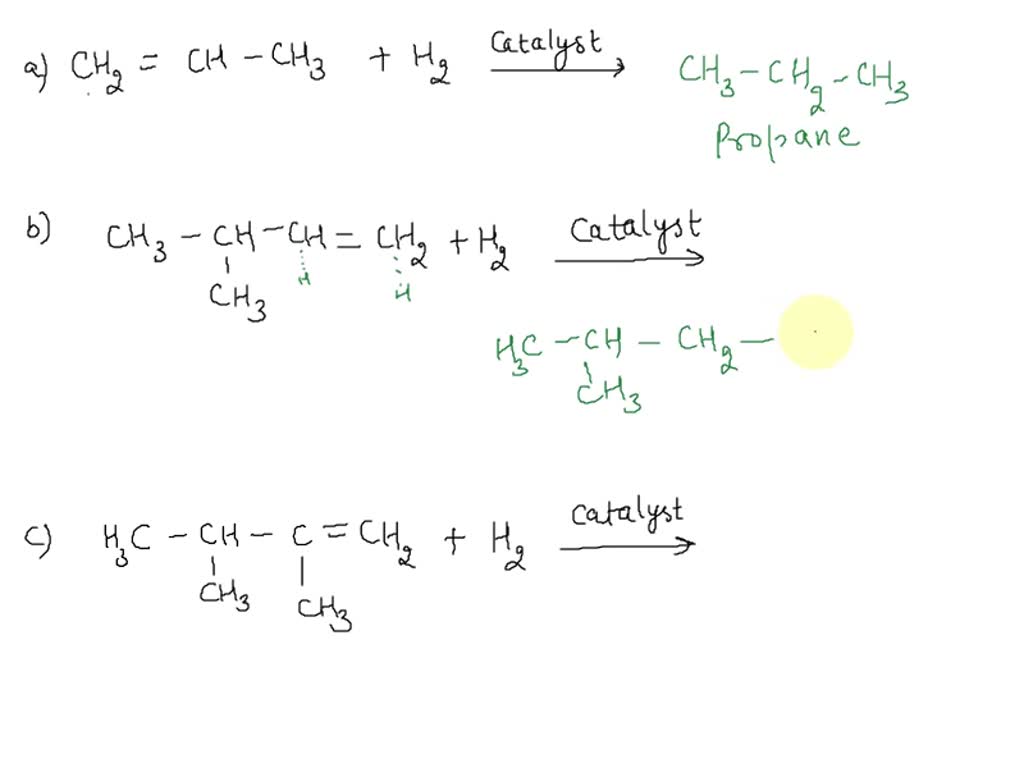 a) CH₂ = CH – CH₃ + H₂ Catalyst → CH₃ – CH₂ – CH₃
Propane
b) CH₃ – CH – CH = CH₂ + H₂ Catalyst →
H H
CH₃
H₃C – CH – CH₂ –
CH₃
c) H₃C – CH – C = CH₂ + H₂ Catalyst →
CH₃ CH₃